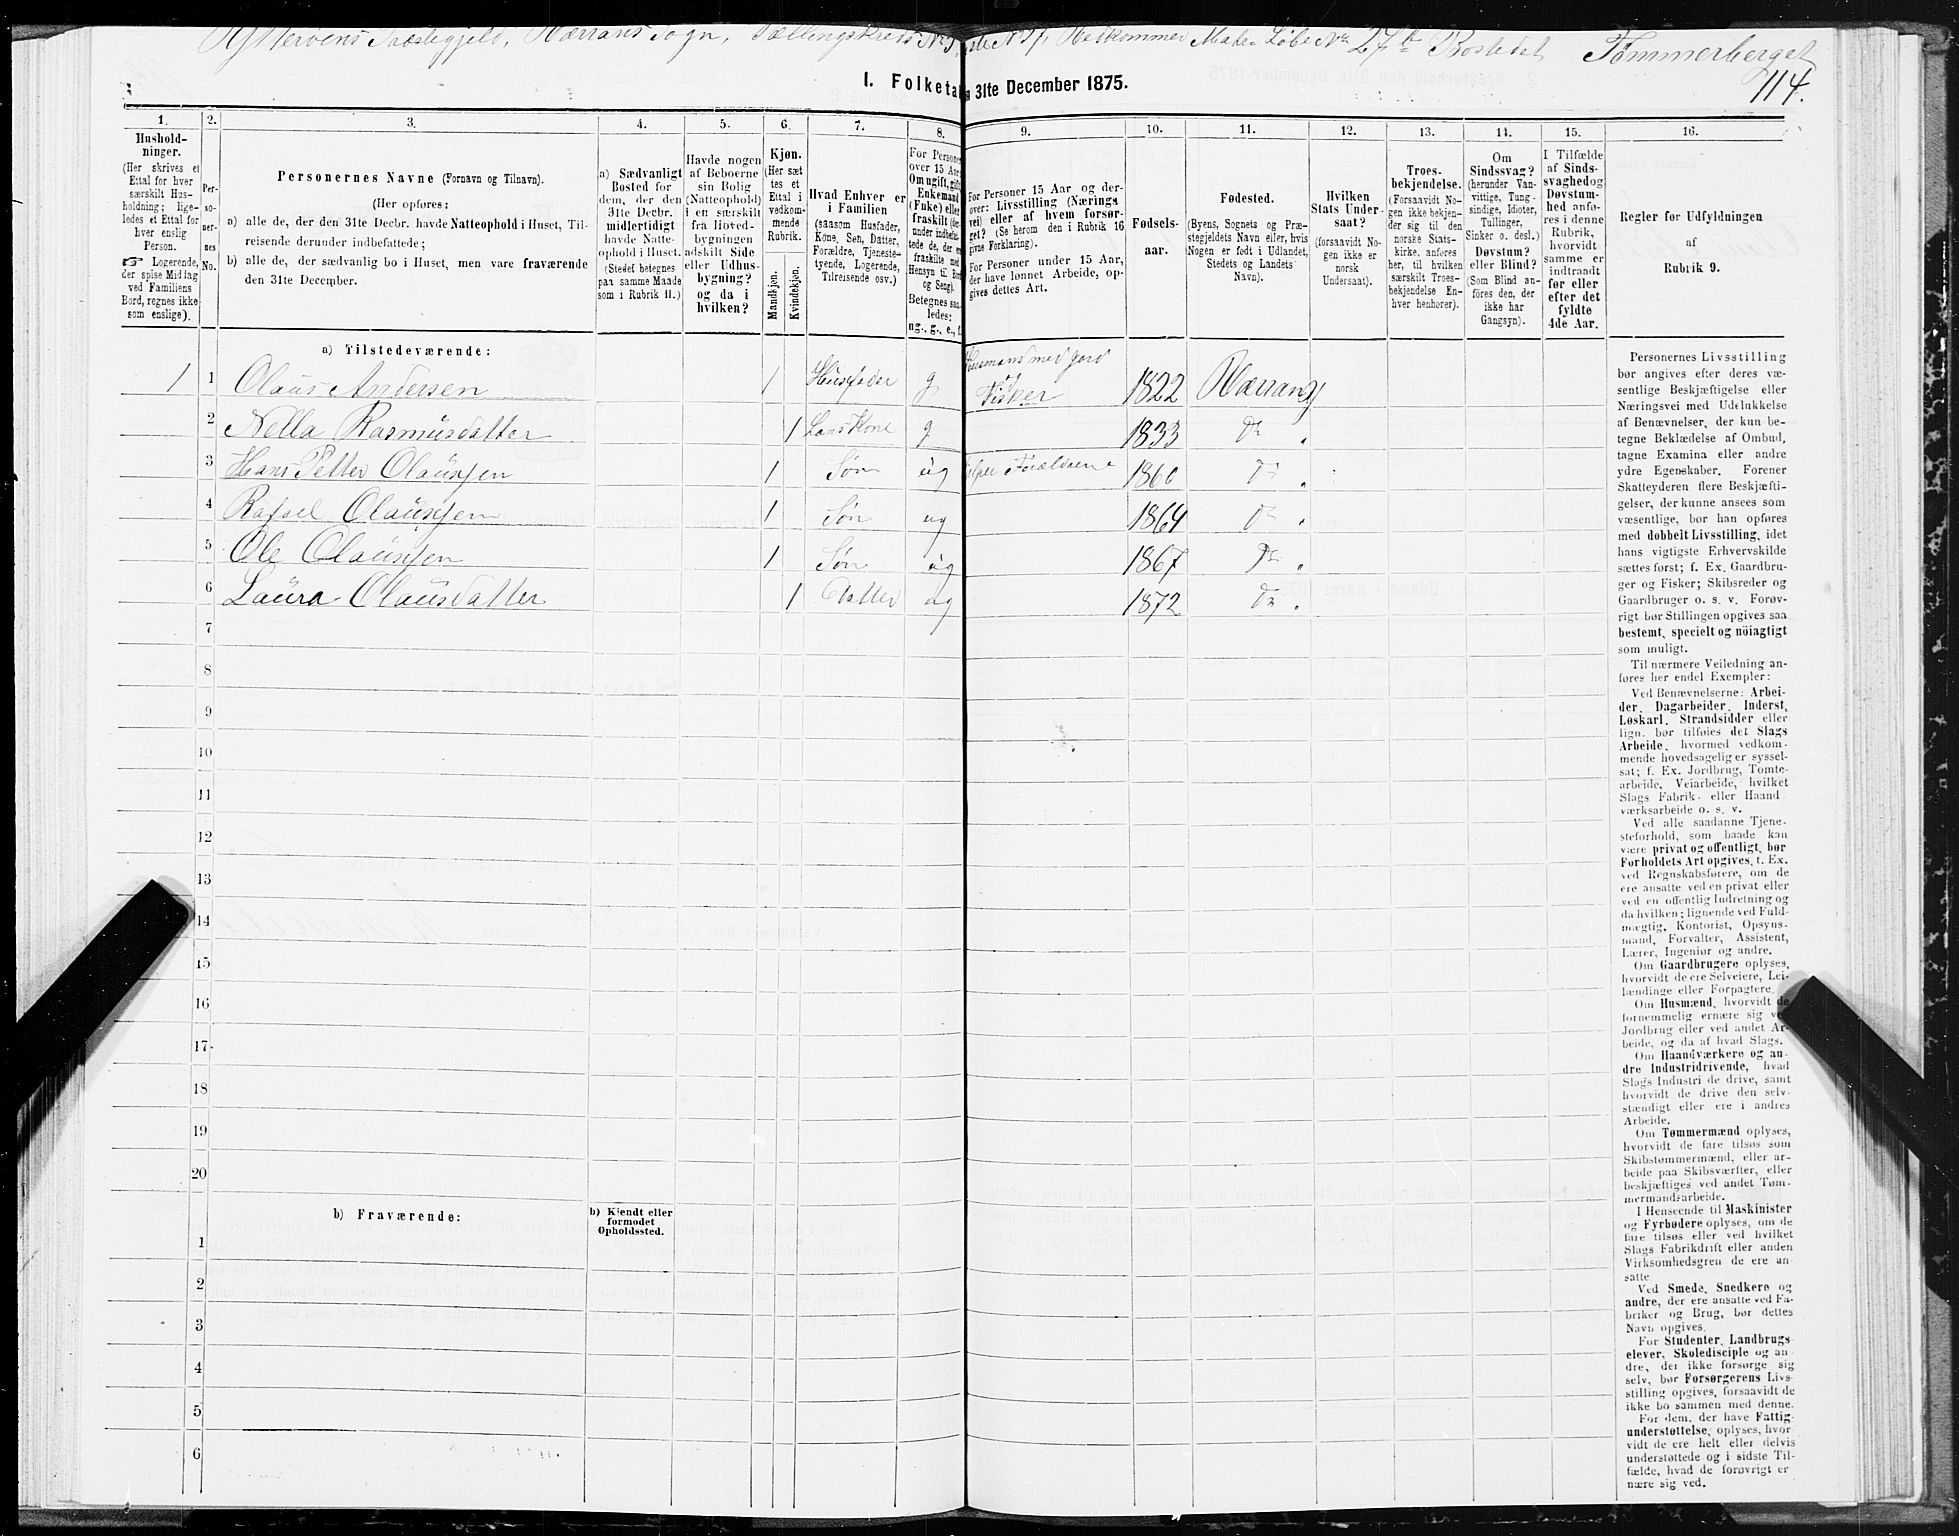 Præstegjeld, Nærrans Sogn, Tællingskreds No 5, Liste No 27, Vedkommer Matr. Løbe No 27 Bostedet Tømmerberget
114.
I. Folketal 31te December 1875.
1. 2. 3. 4. 5. 6. 7. 8. 9. 10. 11. 12. 13. 14. 15. 16.
Hushold-
ninger.
(Her skrives et
Ettal for hver
særskilt Hus-
holdning; lige-
ledes et Ettal for
hver enslig
Person.
☞ Logerende,
der spise Middag
ved Familiens
Bord, regnes ikke
som enslige).
Per-
so-
ner-
nes
No.
Personernes Navne (Fornavn og Tilnavn).
(Her opføres:
a) alle de, der den 31te Decbr. havde Natteophold i Huset, Til-
reisende derunder indbefattede;
b) alle de, der sædvanlig bo i Huset, men vare fraværende
den 31te December.
a) Sædvanligt
Bosted for
dem, der den
31te Decbr.
midlertidigt
havde Natte-
ophold i Huset.
(Stedet betegnes
paa samme Maade
som i Rubrik 11.)
Havde nogen
af Beboerne
sin Bolig
(Natteophold)
i en særskilt
fra Hoved-
bygningen
adskilt Side
eller Udhus-
bygning?
og da i
hvilken?
Kjøn.
(Her sæt
tes et
Ettal i
vedkom-
mende
Rubrik.
Mandkjøn.
Kvindekjøn.
Hvad Enhver er
i Familien
(saasom Husfader,
Kone, Søn, Datter,
Forældre, Tjeneste-
tyende, Logerende,
Tilreisende osv.)
For Personer
over 15 Aar
Om ugift, gift,
Enkemand
(Enke) eller
fraskilt (her-
under indbefat-
tede de, der ere
fraskilte med
Hensyn til Bord
og Seng).
Betegnes saa-
ledes:
ug., g., e., f.
For Personer 15 Aar og der-
over: Livsstilling (Nærings
vei) eller af hvem forsør-
get? (Se herom den i Rubrik 16
givne Forklaring).
For Personer under 15 Aar,
der have lønnet Arbeide, op-
gives dettes Art.
Fødsels-
aar.
Fødested.
(Byens, Sognets og Præ-
stegjeldets Navn eller, hvis
Nogen er født i Udlandet,
Stedets og Landets
Navn).
Hvilken
Stats Under-
saat?
(forsaavidt No-
gen ikke er
norsk
Undersaat).
Troes-
bekjendelse.
(Forsaavidt No-
gen ikke bekjen-
der sig til den
norske Stats-
kirke, anføres
her, til hvilken
særskilt Troes-
bekjendelse En-
hver henhører).
Om
Sindssvag?
(herunder Van-
vittige, Tung-
sindige, Idioter,
Tullinger,
Sinker o. desl.)
Døvstum?
eller Blind?
(Som Blind an-
føres den, der
ikke har
Gangsyn).
I Tilfælde
af Sinds-
svaghed og
Døvstum-
hed anfø-
res i denne
Rubrik,
hvorvidt
samme er
indtraadt
før eller
efter det
fyldte
4de Aar.
Regler for Udfyldningen
af
Rubrik 9.
a) Tilstedeværende:
1 1 Olaus Andersen 1 Husfader g Husmand med jord Fisker 1822 Nærrans
2 Nella Rasmusdatter 1 Hans Kone g 1833 Do „
3 Hans Petter Olaussen 1 Søn ug Hjelper Forældrene 1860 Do „
4 Rafael Olaussen 1 Søn ug 1864 Do „
5 Ole Olaussen 1 Søn ug 1867 Do „
6 Laura Olausdatter 1 Datter ug 1872 Do „
7
8
9
10
11
12
13
14
15
16
17
18
19
20
b) Fraværende:
b) Kjendt eller
formodet
Opholdssted.
1
2
3
4
5
6
Personernes Livsstilling
bør angives efter deres væ-
sentlige Beskjæftigelse eller
Næringsvei med Udelukkelse
af Benævnelser, der kun be-
tegne Beklædelse af Ombud,
tagne Examina eller andre
ydre Egenskaber. Forener
Skatteyderen flere Beskjæfti-
gelser, der kunne ansees som
væsentlige, bør han opføres
med dobbelt Livsstilling, idet
hans vigtigste Erhvervskilde
sættes først; f. Ex. Gaardbru-
ger og Fisker; Skibsreder og
Gaardbruger o. s. v. Forøv-
rigt bør Stillingen opgives saa
bestemt, specielt og nöiagtigt
som muligt.
Til nærmere Veiledning an-
føres her endel Exempler:
Ved Benævnelserne: Arbei-
der, Dagarbeider, Inderst,
Løskarl, Strandsidder eller
lign. bør tilføies det Slags
Arbeide, hvormed vedkom-
mende hovedsagelig er syssel-
sat; f. Ex. Jordbrug, Tomte-
arbeide, Veiarbeide, hvilket
Slags Fabrik- eller Haand
værksarbeide o. s. v.
Ved alle saadanne Tjene-
steforhold, som baade kan
være privat og offentligt, bør
Forholdets Art opgives, t. Ex.
ved Regnskabsførere, om de
ere ansatte ved en privat eller
ved en offentlig Indretning og
da hvilken; lignende ved Fuld-
mægtig, Kontorist, Opsyns-
mand, Forvalter, Assistent,
Lærer, Ingeniør og andre.
Om Gaardbrugere oplyses,
hvorvidt de ere Selveiere, Lei-
lændinge eller Forpagtere.
Om Husmænd, hvorvidt de
fornemmelig ernære sig ved
Jordbrug eller ved andet Ar-
beide, og da af hvad Slags.
Om Haandværkere og an-
dre Industridrivende, hvad
Slags Industri de drive, samt
hvorvidt de drive den selv-
stændigt eller ere i andres
Arbeide.
Om Tømmermænd oplyses,
hvorvidt de fare tilsøs som
Skibstømmermænd, eller ar-
beide paa Skibsværfter, eller
beskjæftiges ved andet Tøm-
mermandsarbeide.
I Henseende til Maskinister
og Fyrbødere oplyses, om de
fare tilsøs eller ved hvilket
Slags Fabrikdrift eller anden
Virksomhedsgren de ere an-
satte
Ved Smede, Snedkere og
andre, der ere ansatte ved Fa-
briker og Brug, bør dettes
Navn opgives.
For Studenter, Landbrugs-
elever, Skoledisciple og an-
dre, der ikke forsørge sig
selv, bør Forsørgerens Livs-
stilling opgives, forsaavidt de
ikke bo sammen med denne.
For dem, der have Fattig-
understøttelse, oplyses, hvor-
vidt de ere helt eller delvis
understøttede og i sidste Til-
fælde, hvad de forøvrigt er
nære sig ved.